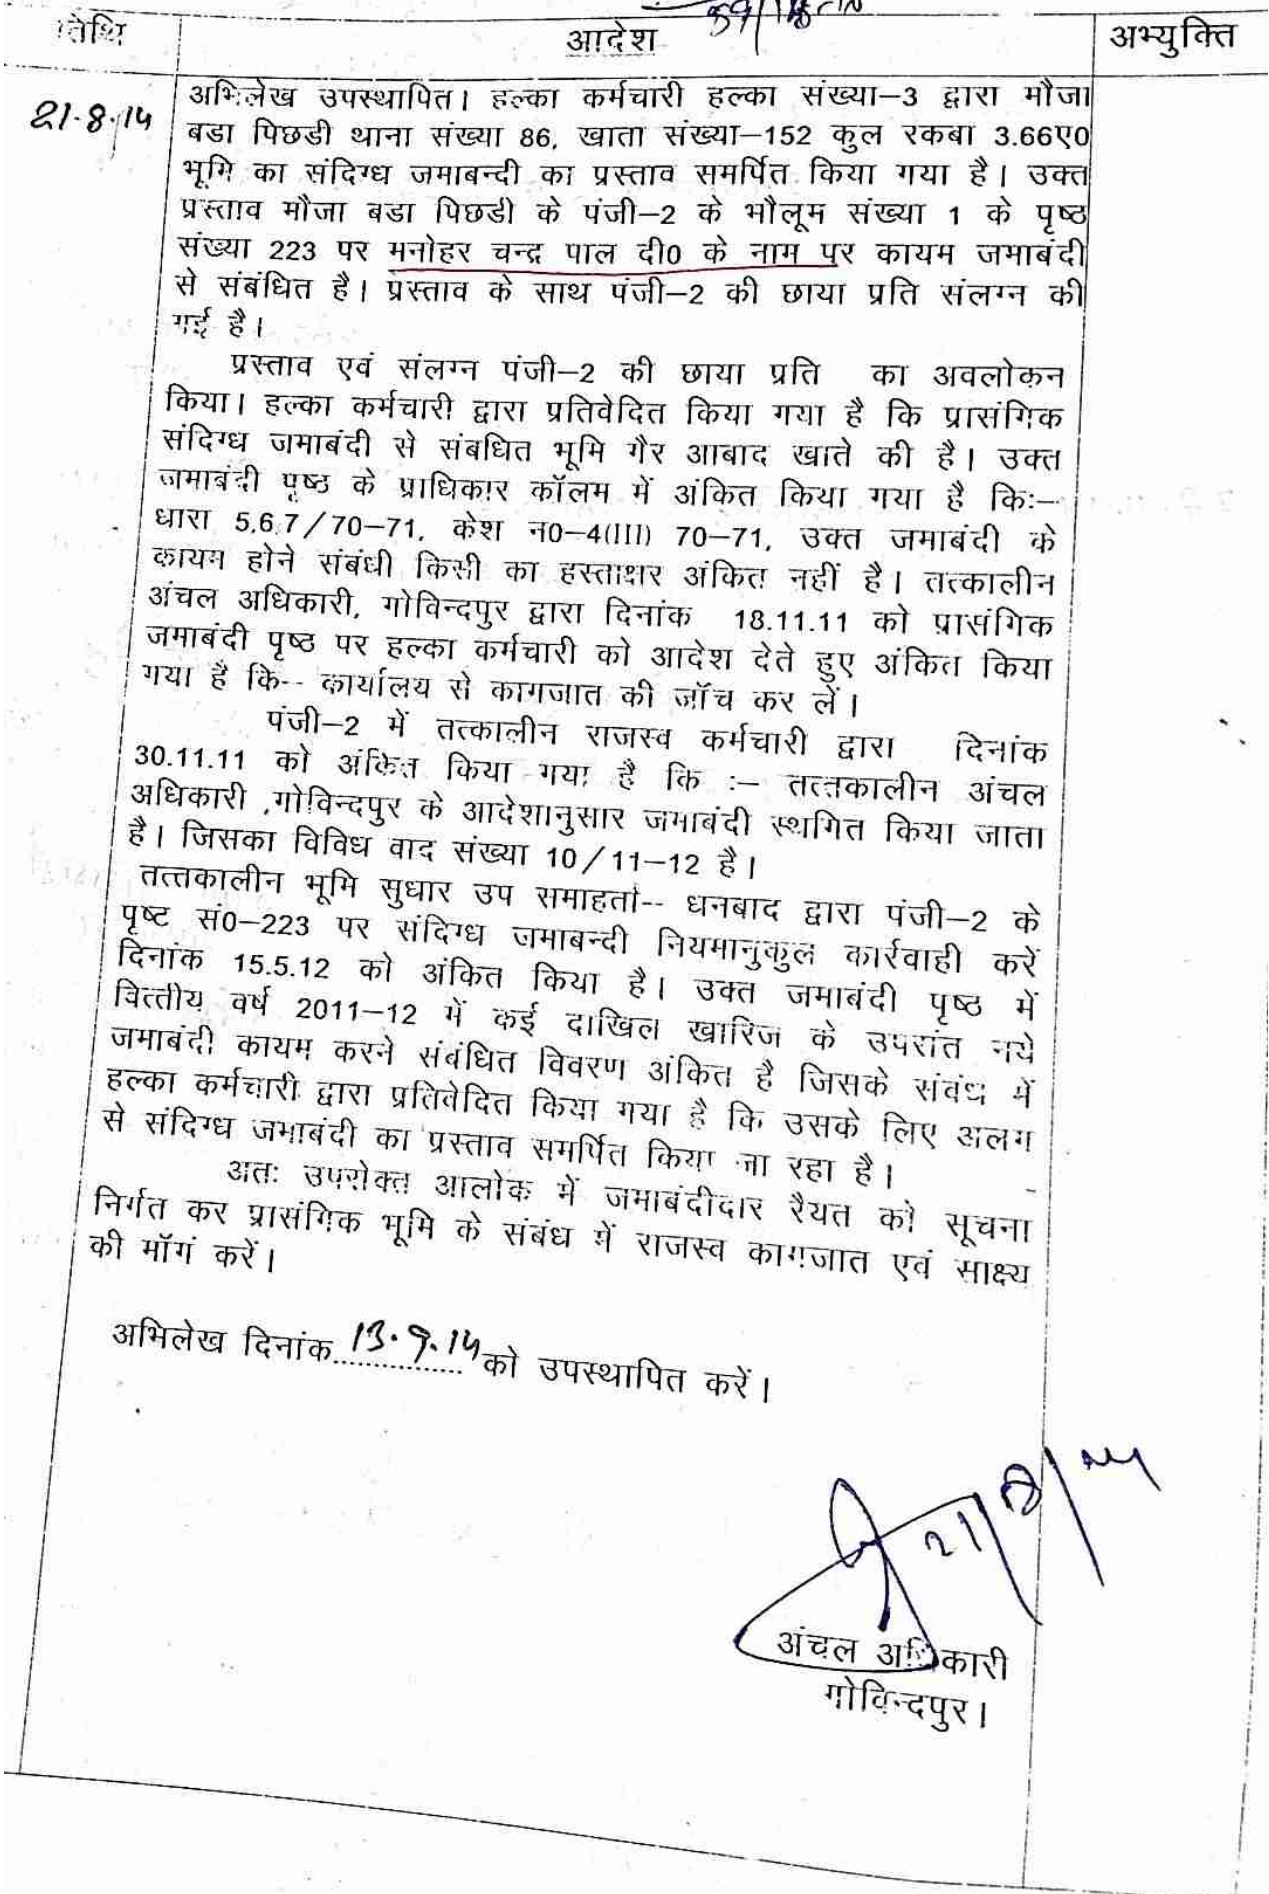 तिथि आदेश अभ्युक्ति
21.8.14
अभिलेख उपस्थापित। हल्का कर्मचारी हल्का संख्या–3 द्वारा मौजा
बडा पिछडी थाना संख्या 86, खाता संख्या–152 कुल रकबा 3.66ए0
भूमि का संदिग्ध जमाबन्दी का प्रस्ताव समर्पित किया गया है। उक्त
प्रस्ताव मौजा बडा पिछडी के पंजी–2 के भौलूम संख्या 1 के पृष्ठ
संख्या 223 पर मनोहर चन्द्र पाल दी0 के नाम पर कायम जमाबंदी
से संबंधित है। प्रस्ताव के साथ पंजी–2 की छाया प्रति संलग्न की
गई है।
प्रस्ताव एवं संलग्न पंजी–2 की छाया प्रति का अवलोकन
किया। हल्का कर्मचारी द्वारा प्रतिवेदित किया गया है कि प्रासंगिक
संदिग्ध जमाबंदी से संबधित भूमि गैर आबाद खाते की है। उक्त
जमाबंदी पृष्ठ के प्राधिकार कॉलम में अंकित किया गया है किः–
धारा 5,6,7/70–71, केश न0–4(III) 70–71, उक्त जमाबंदी के
कायम होने संबंधी किसी का हस्ताक्षर अंकित नहीं है। तत्कालीन
अंचल अधिकारी, गोविन्दपुर द्वारा दिनांक 18.11.11 को प्रासंगिक
जमाबंदी पृष्ठ पर हल्का कर्मचारी को आदेश देते हुए अंकित किया
गया है कि-- कार्यालय से कागजात की जॉच कर लें।
पंजी–2 में तत्कालीन राजस्व कर्मचारी द्वारा दिनांक
30.11.11 को अंकित किया गया है कि :– तत्तकालीन अंचल
अधिकारी ,गोविन्दपुर के आदेशानुसार जमाबंदी स्थगित किया जाता
है। जिसका विविध वाद संख्या 10/11–12 है।
तत्तकालीन भूमि सुधार उप समाहर्ता-- धनबाद द्वारा पंजी–2 के
पृष्ट सं0–223 पर संदिग्ध जमाबन्दी नियमानुकुल कार्रवाही करें
दिनांक 15.5.12 को अंकित किया है। उक्त जमाबंदी पृष्ठ में
वित्तीय वर्ष 2011–12 में कई दाखिल खारिज के उपरांत नये
जमाबंदी कायम करने संबंधित विवरण अंकित है जिसके संबंध में
हल्का कर्मचारी द्वारा प्रतिवेदित किया गया है कि उसके लिए अलग
से संदिग्ध जमाबंदी का प्रस्ताव समर्पित किया जा रहा है।
अतः उपरोक्त आलोक में जमाबंदीदार रैयत को सूचना
निर्गत कर प्रासंगिक भूमि के संबंध में राजस्व कागजात एवं साक्ष्य
की मॉगं करें।
अभिलेख दिनांक 13.9.14 को उपस्थापित करें।
21/8/14
अंचल अधिकारी
गोविन्दपुर।